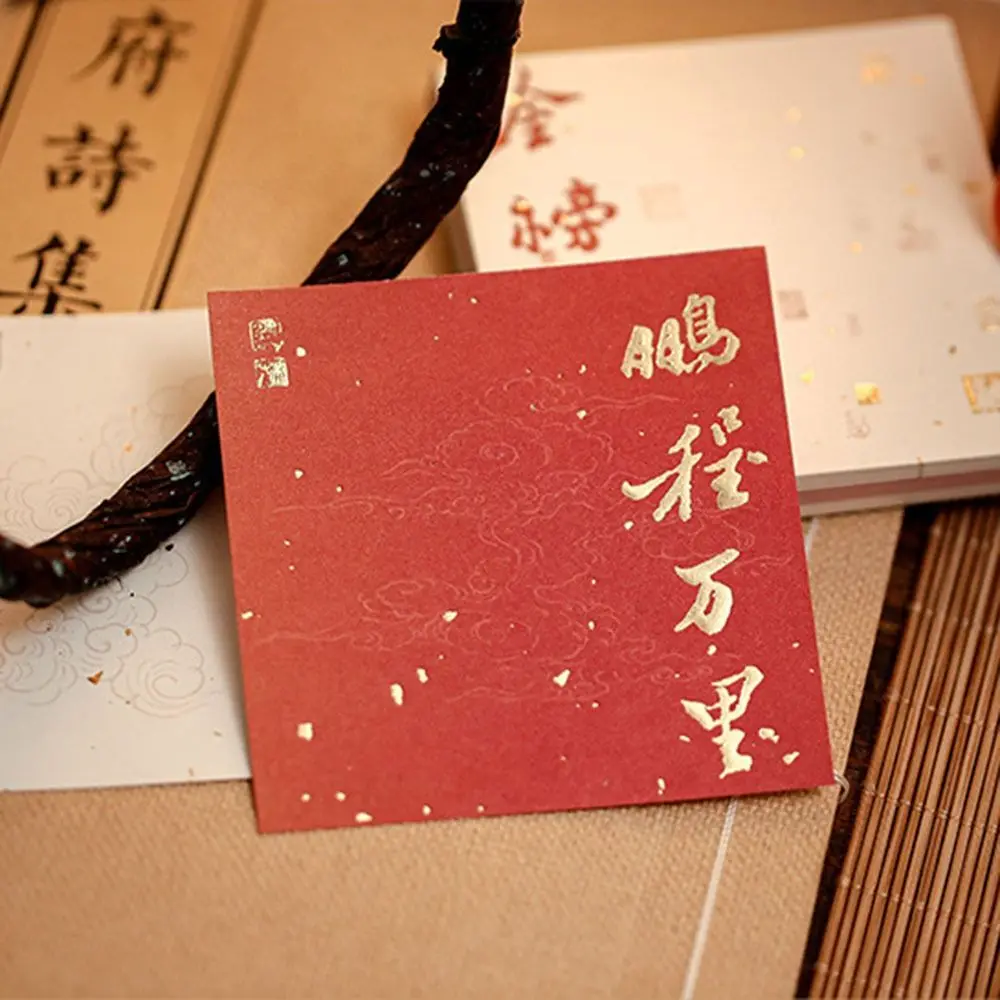 府詩集
金榜
鵬程万里